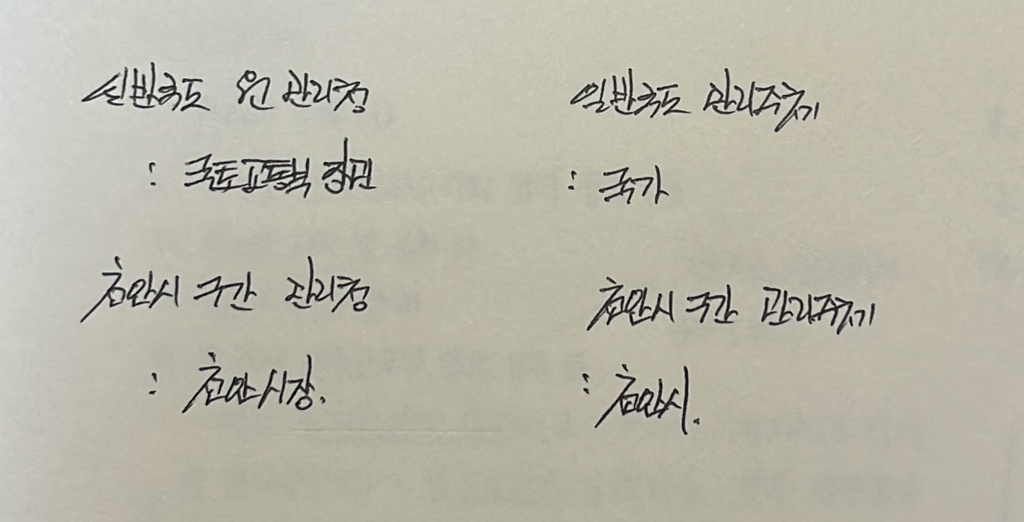 일반국도 원 관리청
일반국도 관리주체
: 국토교통부 장관
: 국가
천안시 구간 관리청
천안시 구간 관리주체
: 천안시장.
: 천안시.